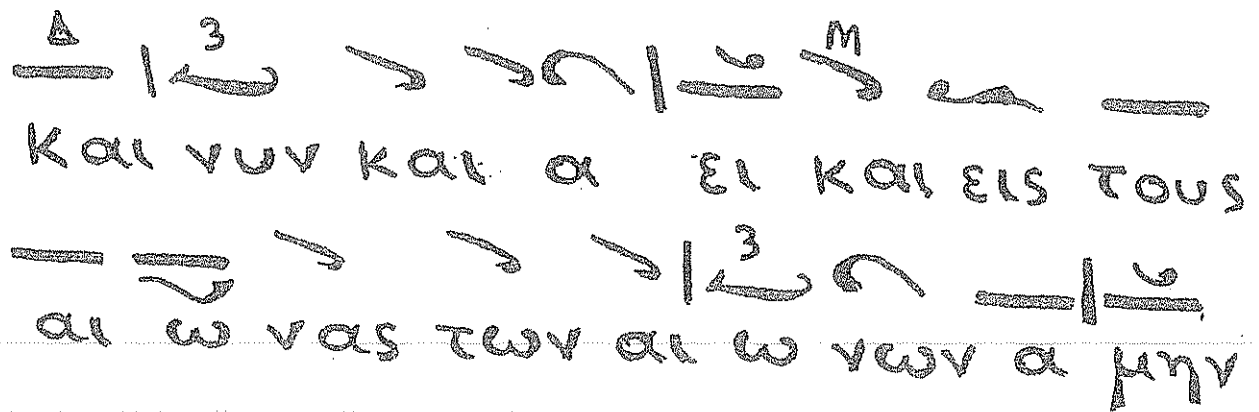 Δ 3 Μ
και νυν και α ει και εις τους
3
αι ω νας των αι ω νων α μην